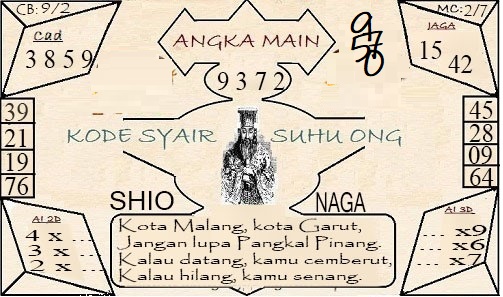 CB: 9/2
MC: 2/7
Cad
3 8 5 9
ANGKA MAIN
9 3 7 2
9
5 7
0
JAGA
15
42
39
21
19
76
KODE SYAIR SUHU ONG
45
28
09
64
SHIO NAGA
AI 2D
4 x ...
3 x ...
2 x ...
Kota Malang, kota Garut,
Jangan lupa Pangkal Pinang.
Kalau datang, kamu cemberut,
Kalau hilang, kamu senang.
AI 3D
... x9
... x6
... x7